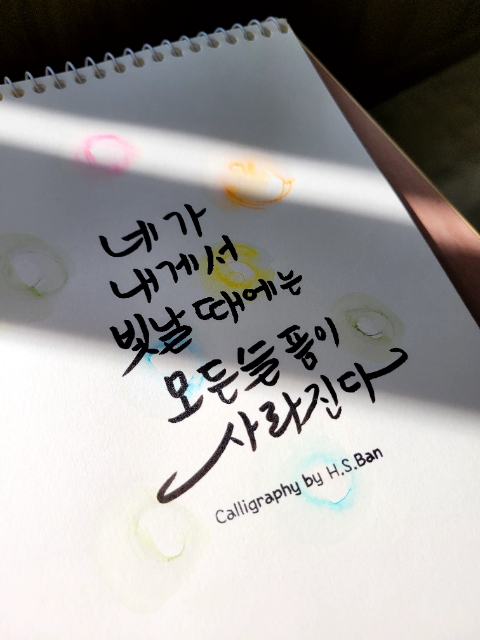 네가
내게서
빛날 때에는
모든슬픔이
사라진다
Calligraphy by H.S.Ban